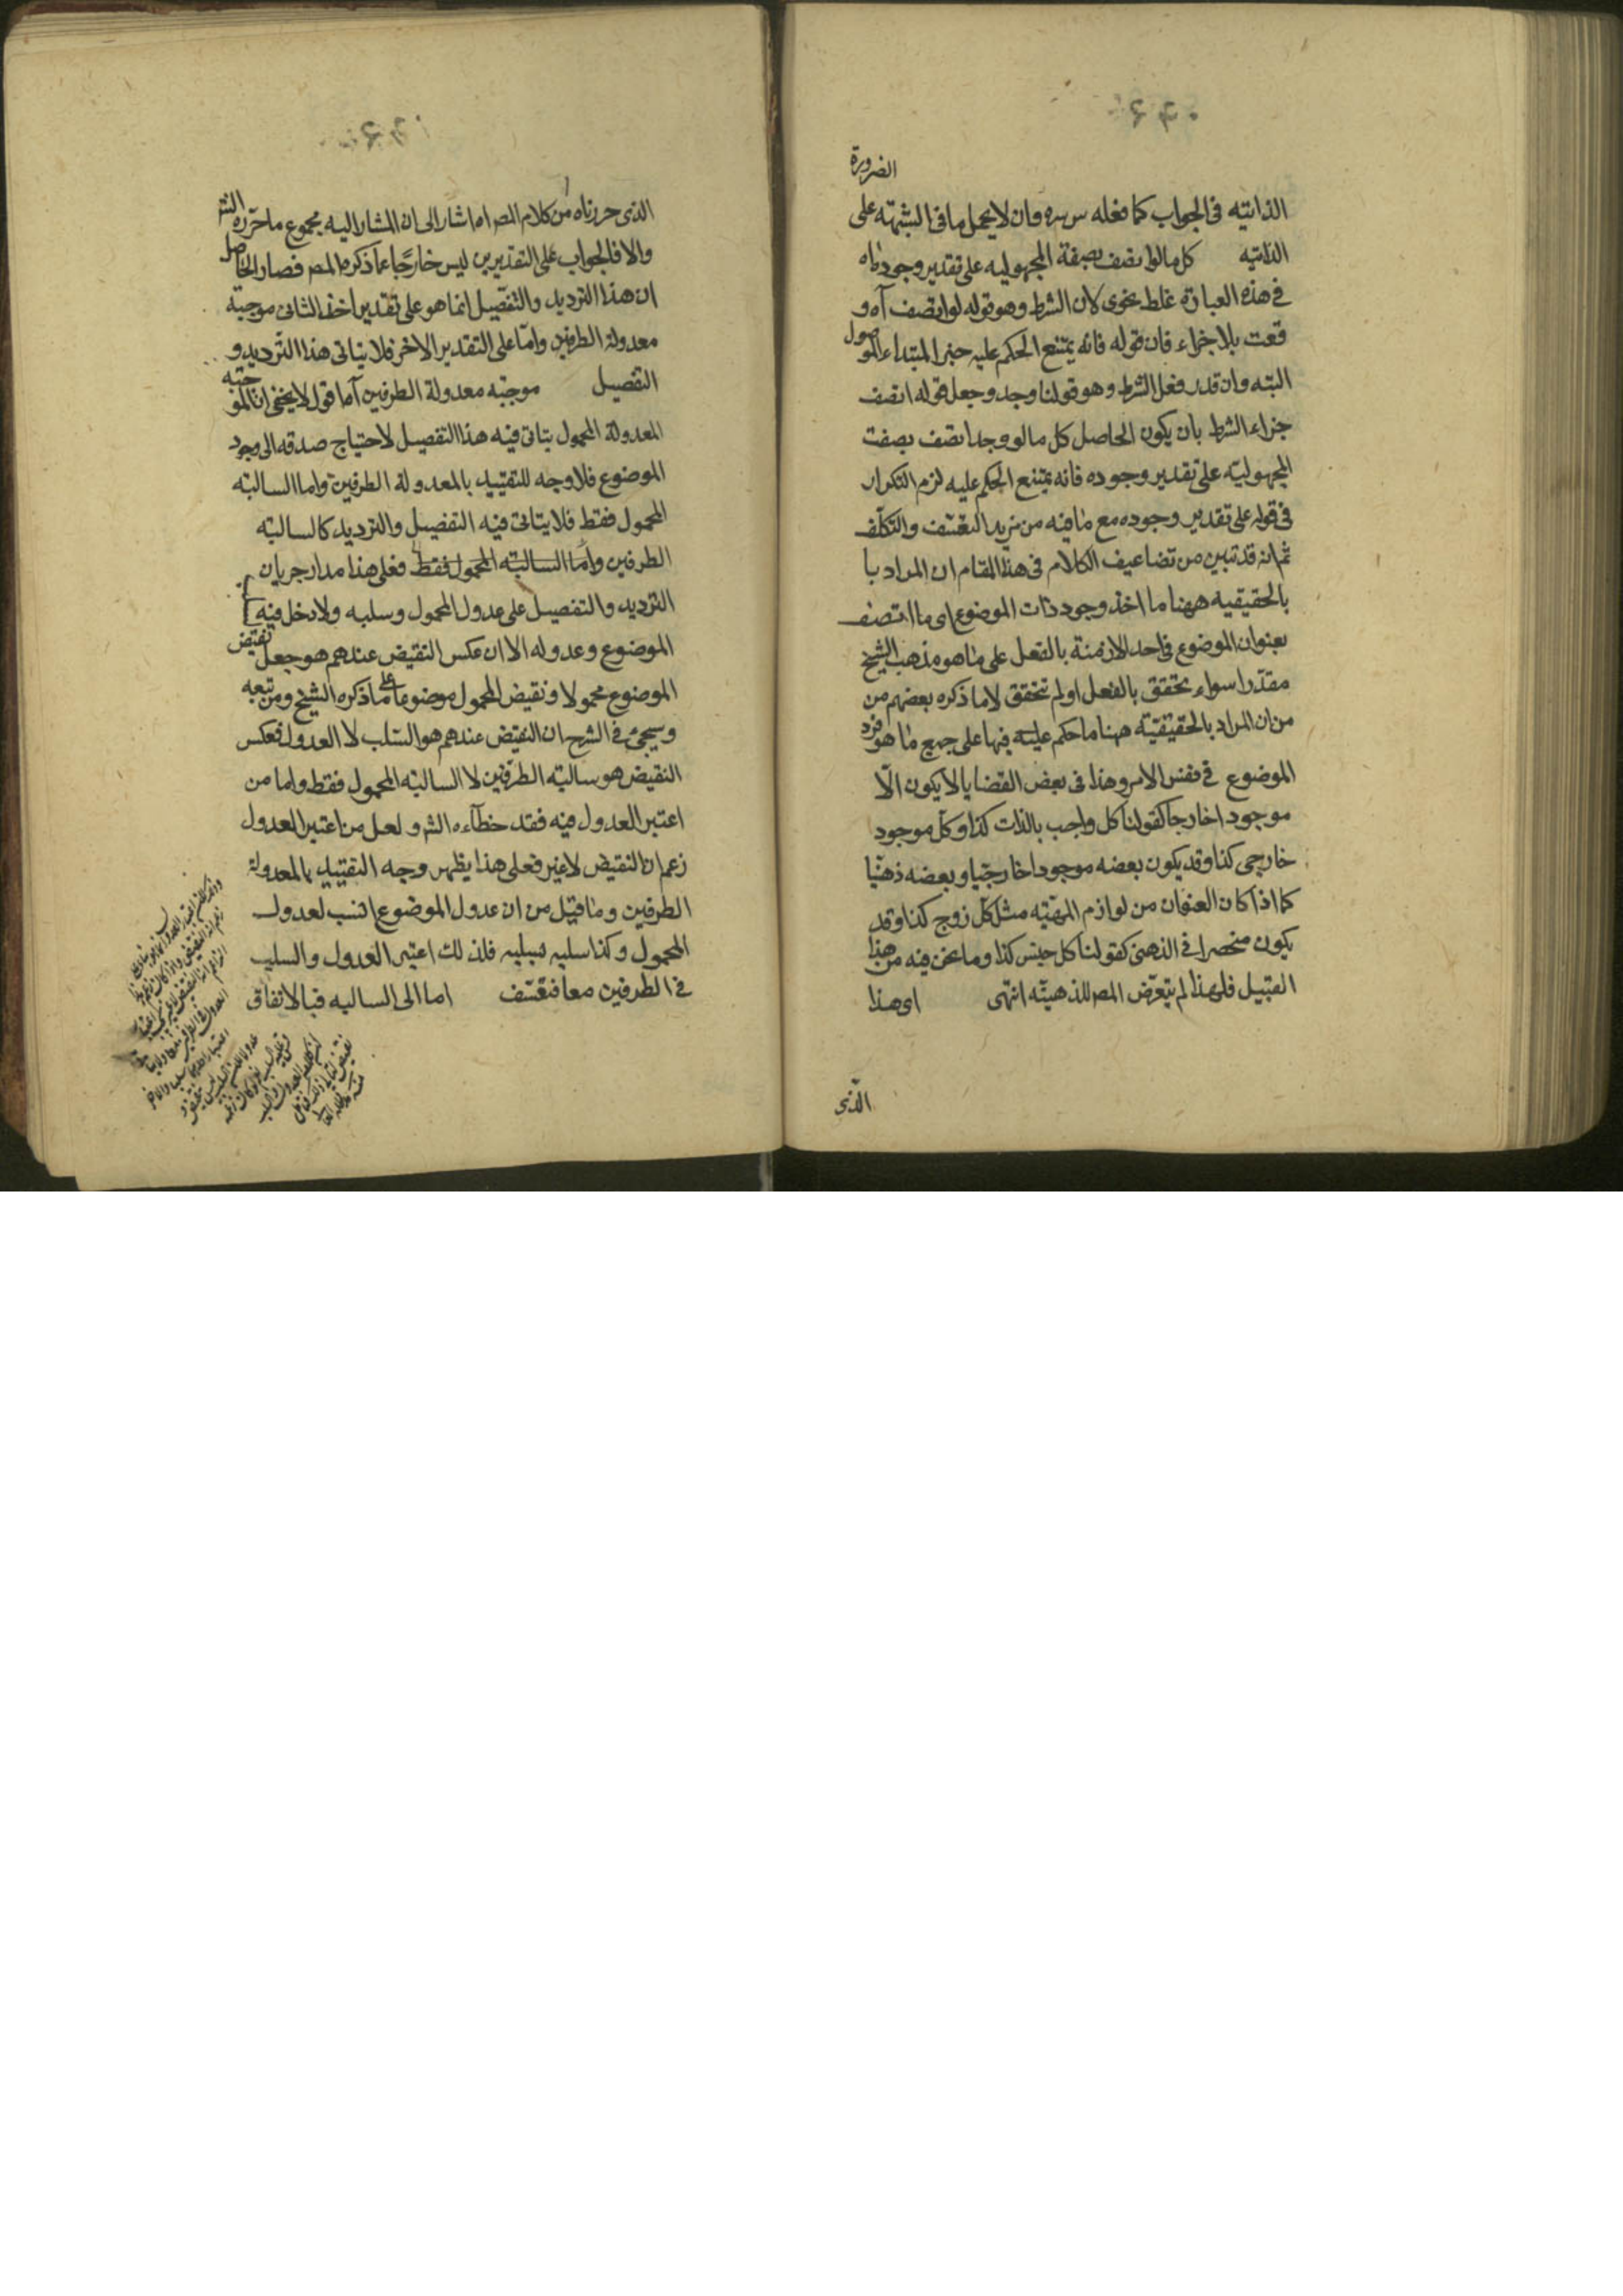 الضرورة
الذاتية فى الجواب كما فعله س سره وان لا يحمل ما فى الشبهة على
الذاتية كل ما لو اتصف بصفة المجهولية على تقدير وجود ماه
فى هذه العبارة غلط نحوى لان الشرط وهو قوله لو اتصف آه و
قعت بلا جزاء فان قوله فانه يمتنع الحكم عليه خبر المبتداء الموصول
البته وان قدر فعل الشرط وهو قولنا وجد وجعل قوله اتصف
جزاء الشرط بان يكون الحاصل كل ما لو وجد اتصف بصفت
المجهولية على تقدير وجوده فانه يمتنع الحكم عليه لزم التكرار
فى قوله على تقدير وجوده مع ما فيه من مزيد التعسف والتكلف
ثم انه قد تبين من تضاعيف الكلام فى هذا المقام ان المراد با
بالحقيقية ههنا ما اخذ وجود ذات الموضوع اى ما اتصف
بعنوان الموضوع فى احد الازمنة بالفعل على ما هو مذهب الشيخ
مقدرا سواء تحقق بالفعل او لم تحقق لا ما ذكره بعضهم من
من ان المراد بالحقيقية ههنا ما حكم عليه فيها على جميع ما هو فرد
الموضوع فى نفس الامر وهذا فى بعض القضايا لا يكون الا
موجودا خارجا كقولنا كل واجب بالذات كذا وكل موجود
خارجى كذا وقد يكون بعضه موجودا خارجيا وبعضه ذهنيا
كما اذا كان العنوان من لوازم المهية مثل كل زوج كذا وقد
يكون منحصرا فى الذهنى كقولنا كل جنس كذا وما نحن فيه من هذا
القبيل فلهذا لم يتعرض المصر للذهنية انتهى اى هذا
الذى
الذى حررناه من كلام المصر اه اشار الى ان المشار اليه مجموع ما حرره الشر
والا فالجواب على التقديرين ليس خارجا عما ذكره المصر فصار الحاصل
ان هذا الترديد والتفصيل انما هو على تقدير اخذ الثانى موجبة
معدولة الطرفين واما على التقدير الاخر فلا يتاتى هذا الترديد و
التفصيل موجبه معدولة الطرفين آه اقول لا يخفى ان الموجبه
المعدولة المحمول يتاتى فيه هذا التفصيل لاحتياج صدقه الى وجود
الموضوع فلا وجه للتقييد بالمعدولة الطرفين واما السالبة
المحمول فقط فلا يتاتى فيه التفصيل والترديد كالسالبة
الطرفين واما السالبته المحمول فقط فعلى هذا مدار جريان
الترديد والتفصيل على عدول المحمول وسلبه ولا دخل فيه
الموضوع وعدوله الا ان عكس النقيض عندهم هو جعل نقيض
الموضوع محمولا ونقيض المحمول موضوعا على ما ذكره الشيخ ومن تبعه
وسيجئ فى الشرح ان النقيض عندهم هو السلب لا العدول فعكس
النقيض هو سالبة الطرفين لا السالبة المحمول فقط واما من
اعتبر العدول فيه فقد خطآءه الشر و لعل من اعتبر العدول
زعم ان النقيض لا غير فعلى هذا يظهر وجه التقييد بالمعدولة
الطرفين وما قيل من ان عدول الموضوع انسب لعدول
المحمول وكذا سلبه لسلبه فلذلك اعتبر العدول والسلب
فى الطرفين معا فتعسف اما الى السالبه فبالاتفاق